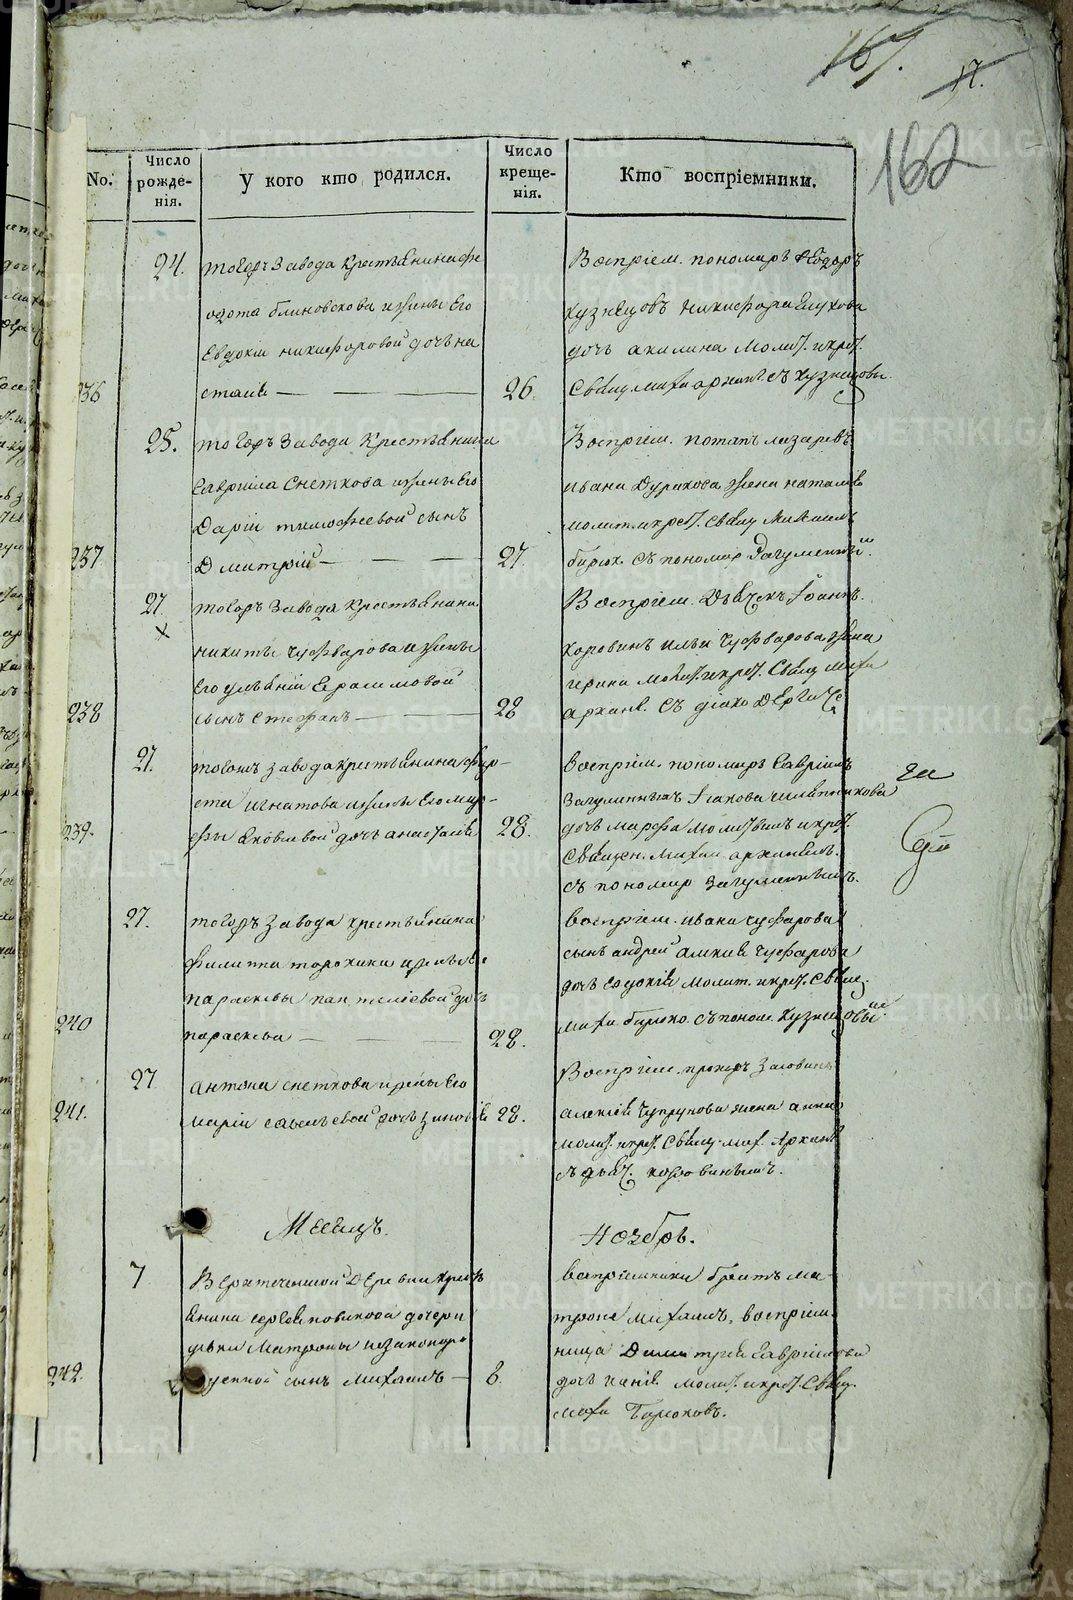 167.
17.
162
No.
Число рожде-нія.
У кого кто родился.
Число креще-нія.
Кто воспріемники.
24. тогожъ завода крестьянина Фе
одота Блиновскова и жены Его
Евдокіи никифоровой дочь на
236 стасія 26.
Воспріем. пономаръ Феодоръ
Кузнецовъ никифора Елухова
дочь акилина молит. и крест.
Свящ. михи архан. съ Кузнецовы
25. тогожъ завода Крестьянина
Гавриила Снеткова и жены Его
Даріи тимофеевой сынъ
237 Дмитрій 27.
Воспріем. потапъ лазаревъ
ивана Дуракова жена наталія
молит. и крест. Свящ Михаилъ
бирюк. съ пономар Загуменны
27. тогожъ завода крестьянина
никиты Чуфарова и жены
Его ульяніи Герасимовой
238 сынъ Стефанъ 28
Воспріем. Дьячекъ Іоаннъ
коровинъ ильи Чуфарова жена
ирина молит. и крест. Свящ миха
арханг. съ діако
27. тогожъ завода крестьянина
игнатова и жены Его мар-
239. фы яковлевой дочь анастасія 28.
воспріем. пономаръ Гавріилъ
Загуменныхъ Іакова
дочь марфа молитвилъ и крест.
Священ. михаи архангел.
съ пономар Загуменнымъ.
27. тогожъ завода крестьянина
филипа торохина и жены
параскевы пантелеевой дочь
240 параскева 28.
воспріем. ивана чуфарова
сынъ андрей чуфарова
дочь Евдокія молит. и крест. Свящ.
миха бирюко. съ поном. Кузнецовы
27 антона снеткова и жены Его
241. маріи савельевой дочь зиновія 28.
Воспріем. прохоръ
алексія Чупрунова жена анна
молит. и крест. Свящ. мих. Архан
съ дьяч. коровинымъ.
Месецъ. Ноября.
7 Верхтеченской Деревни крест
янина сергея новикова дочери
девки Матроны незаконоро
242. жденной сынъ михаилъ 8.
воспріемники братъ ма
трони михаилъ, воспріем
ница Дмитрия Гавриилова
дочь молит. и крест. Свящ.
миха Бирюковъ.